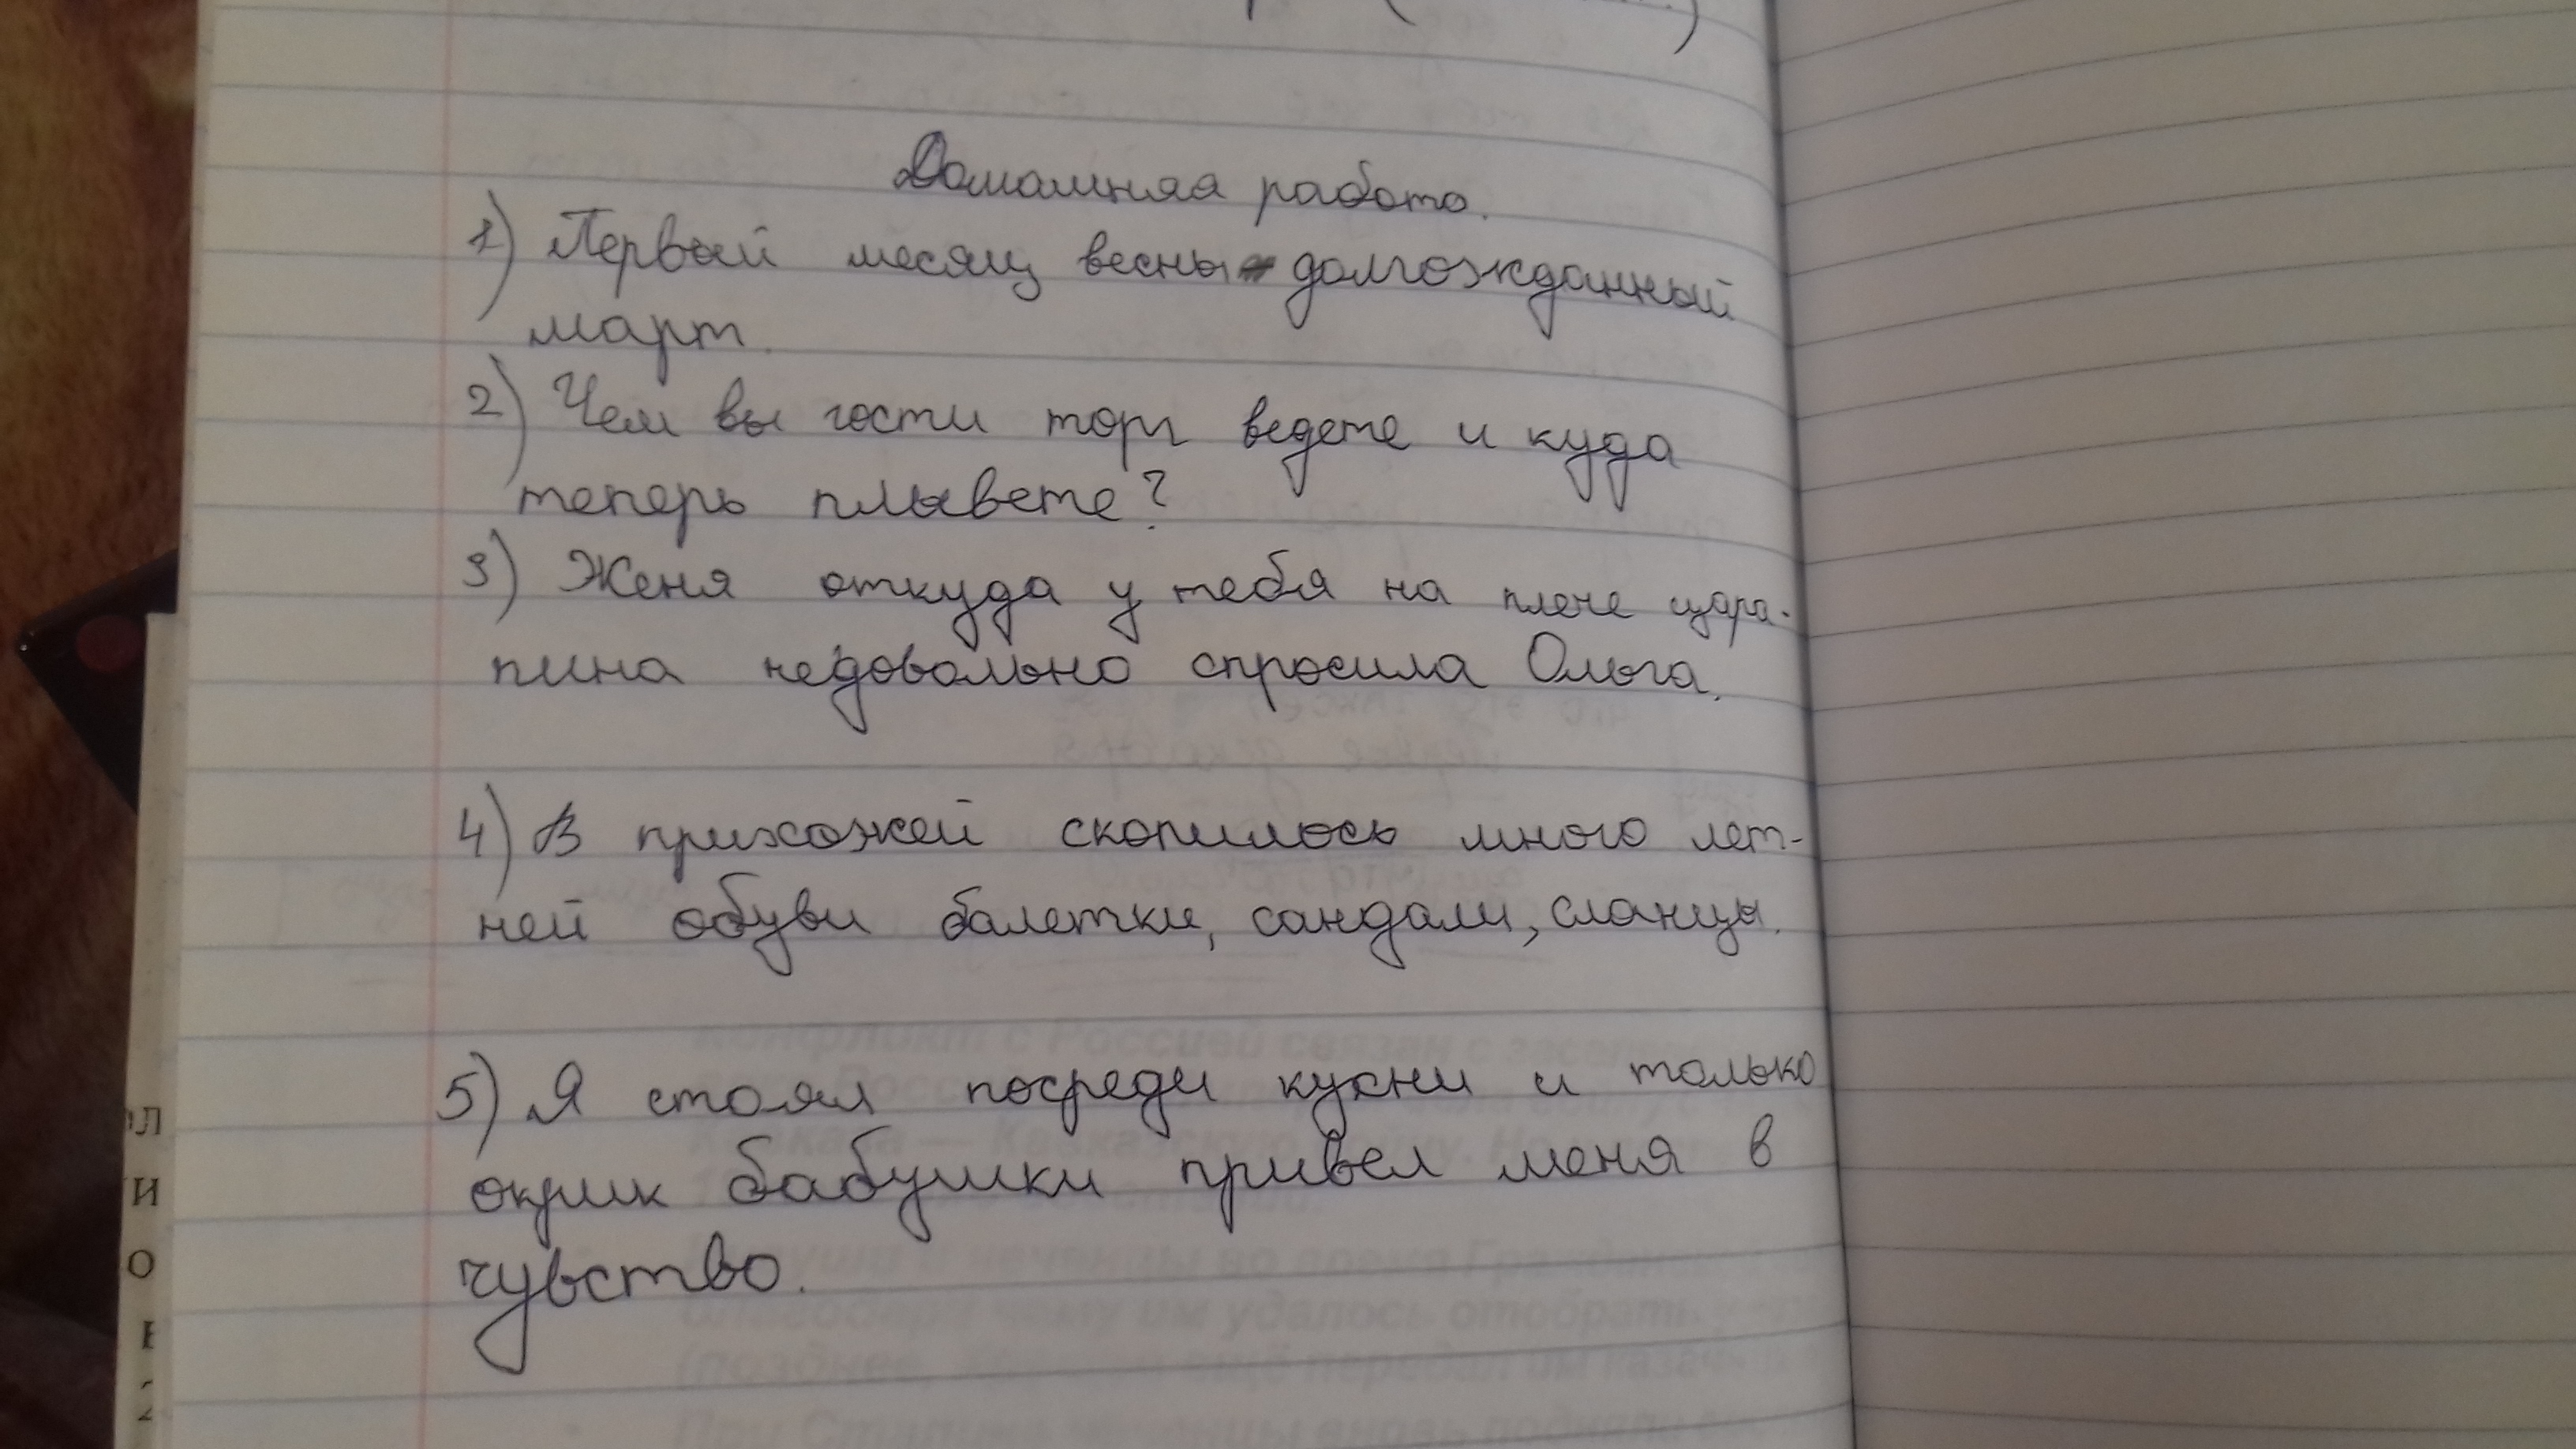 Домашняя работа.
1) Первый месяц весны - долгожданный
март.
2) Чем вы гости торг ведете и куда
теперь плывете?
3) Женя откуда у тебя на плече цара-
пина недовольно спросила Ольга.
4) В прихожей скопилось много лет-
ней обуви балетки, сандали, сланцы.
5) Я стоял посреди кухни и только
окрик бабушки привел меня в
чувство.